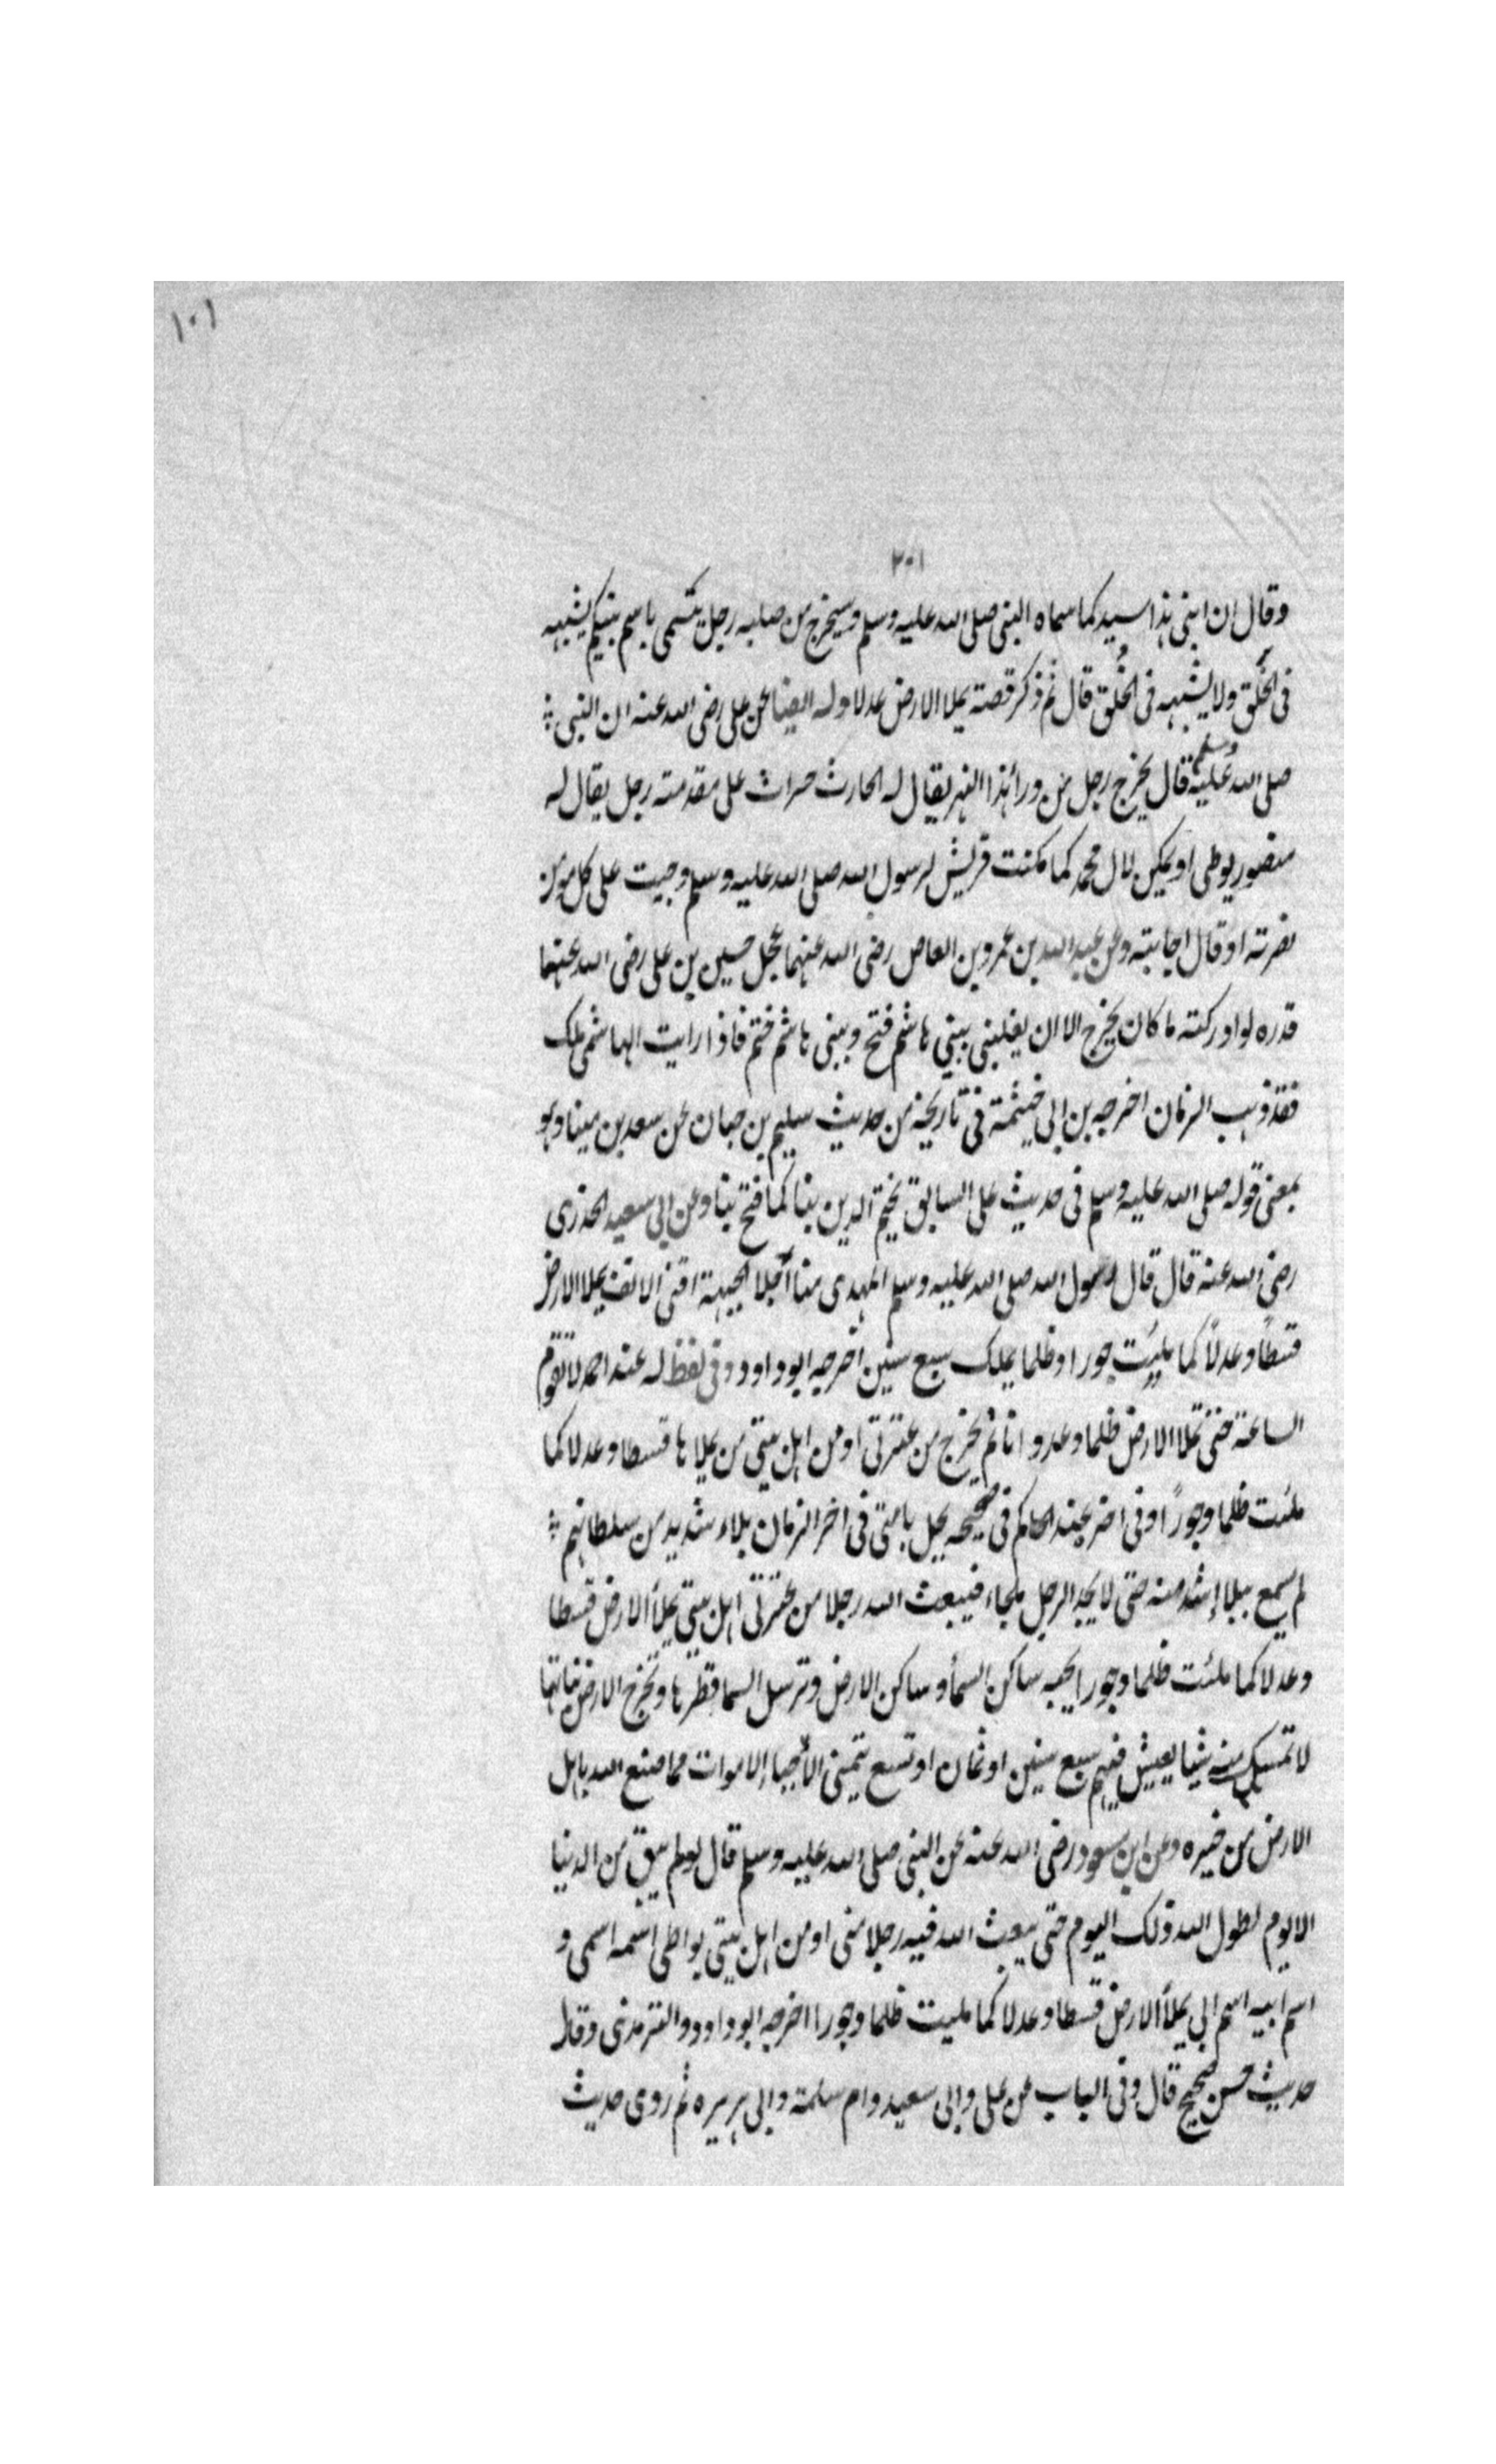 ١٠١
٢٠١
وقال ان ابنى هذا سيد كما سماه النبى صلى الله عليه وسلم وسيخرج من صلبه رجل يتسمى باسم نبيكم يشبهه
فى الخَلق ولا يشبهه فى الخُلق قال ثم ذكر قصته يملا الارض عدلا وله ايضا عن على رضى الله عنه ان النبى
صلى الله عليه وسلم قال يخرج رجل من وراء هذا النهر يقال له الحارث حراث على مقدمته رجل يقال له
منصور يوطى او يمكن لال محمد كما مكنت قريش لرسول الله صلى الله عليه وسلم وجبت على كل مومن
نصرته او قال اجابته وعن عبد الله بن عمرو بن العاص رضى الله عنهما عجل حسين بن على رضى الله عنهما
قدره لو ادركته ما كان يخرج الا ان يغلبنى ببنى هاشم فتح وببنى هاشم ختم فاذا رايت الهاشمى ملك
فقد ذهب الزمان اخرجه بن ابى خيثمة فى تاريخه من حديث سليم بن حبان عن سعد بن مينا وهو
بمعنى قوله صلى الله عليه وسلم فى حديث على السابق يختم الدين بنا كما فتح بنا وعن ابى سعيد الخدرى
رضى الله عنه قال قال رسول الله صلى الله عليه وسلم المهدى منا أجلا الجبهة اقنى الانف يملا الارض
قسطاً وعدلاً كما ملئت جورا وظلما يملك سبع سنين اخرجه ابو داود وفى لفظ له عند احمد لا تقوم
الساعة حتى تملا الارض ظلما وعدوانا ثم يخرج من عترتى او من اهل بيتى من يملاها قسطا وعدلا كما
ملئت ظلما وجوراً وفى اخر عند الحاكم فى صحيحه يحل بامتى فى اخر الزمان بلاء شديد من سلطانهم
لم يسمع ببلاء اشد منه حتى لا يجد الرجل ملجاء فيبعث الله رجلا من عترتى اهل بيتى يملأ الارض قسطا
وعدلا كما ملئت ظلما وجورا يحبه ساكن السمأ وساكن الارض وترسل السما قطرها وتخرج الارض نباتها
لا تمسك منه شيا يعيش فيهم سبع سنين او ثمان او تسع يتمنى الأحياء الاموات مما صنع الله باهل
الارض من خيره وعن ابن مسعود رضى الله عنه عن النبى صلى الله عليه وسلم قال لو لم يبق من الدنيا
الا يوم لطول الله ذلك اليوم حتى يبعث الله فيه رجلا منى او من اهل بيتى يواطى اسمه اسمى و
اسم ابيه اسم ابى يملأ الارض قسطا وعدلا كما مليت ظلما وجورا اخرجه ابو داود والترمذى وقال
حديث حسن صحيح قال وفى الباب عن على وابى سعيد وام سلمة وابى هريره ثم روى حديث